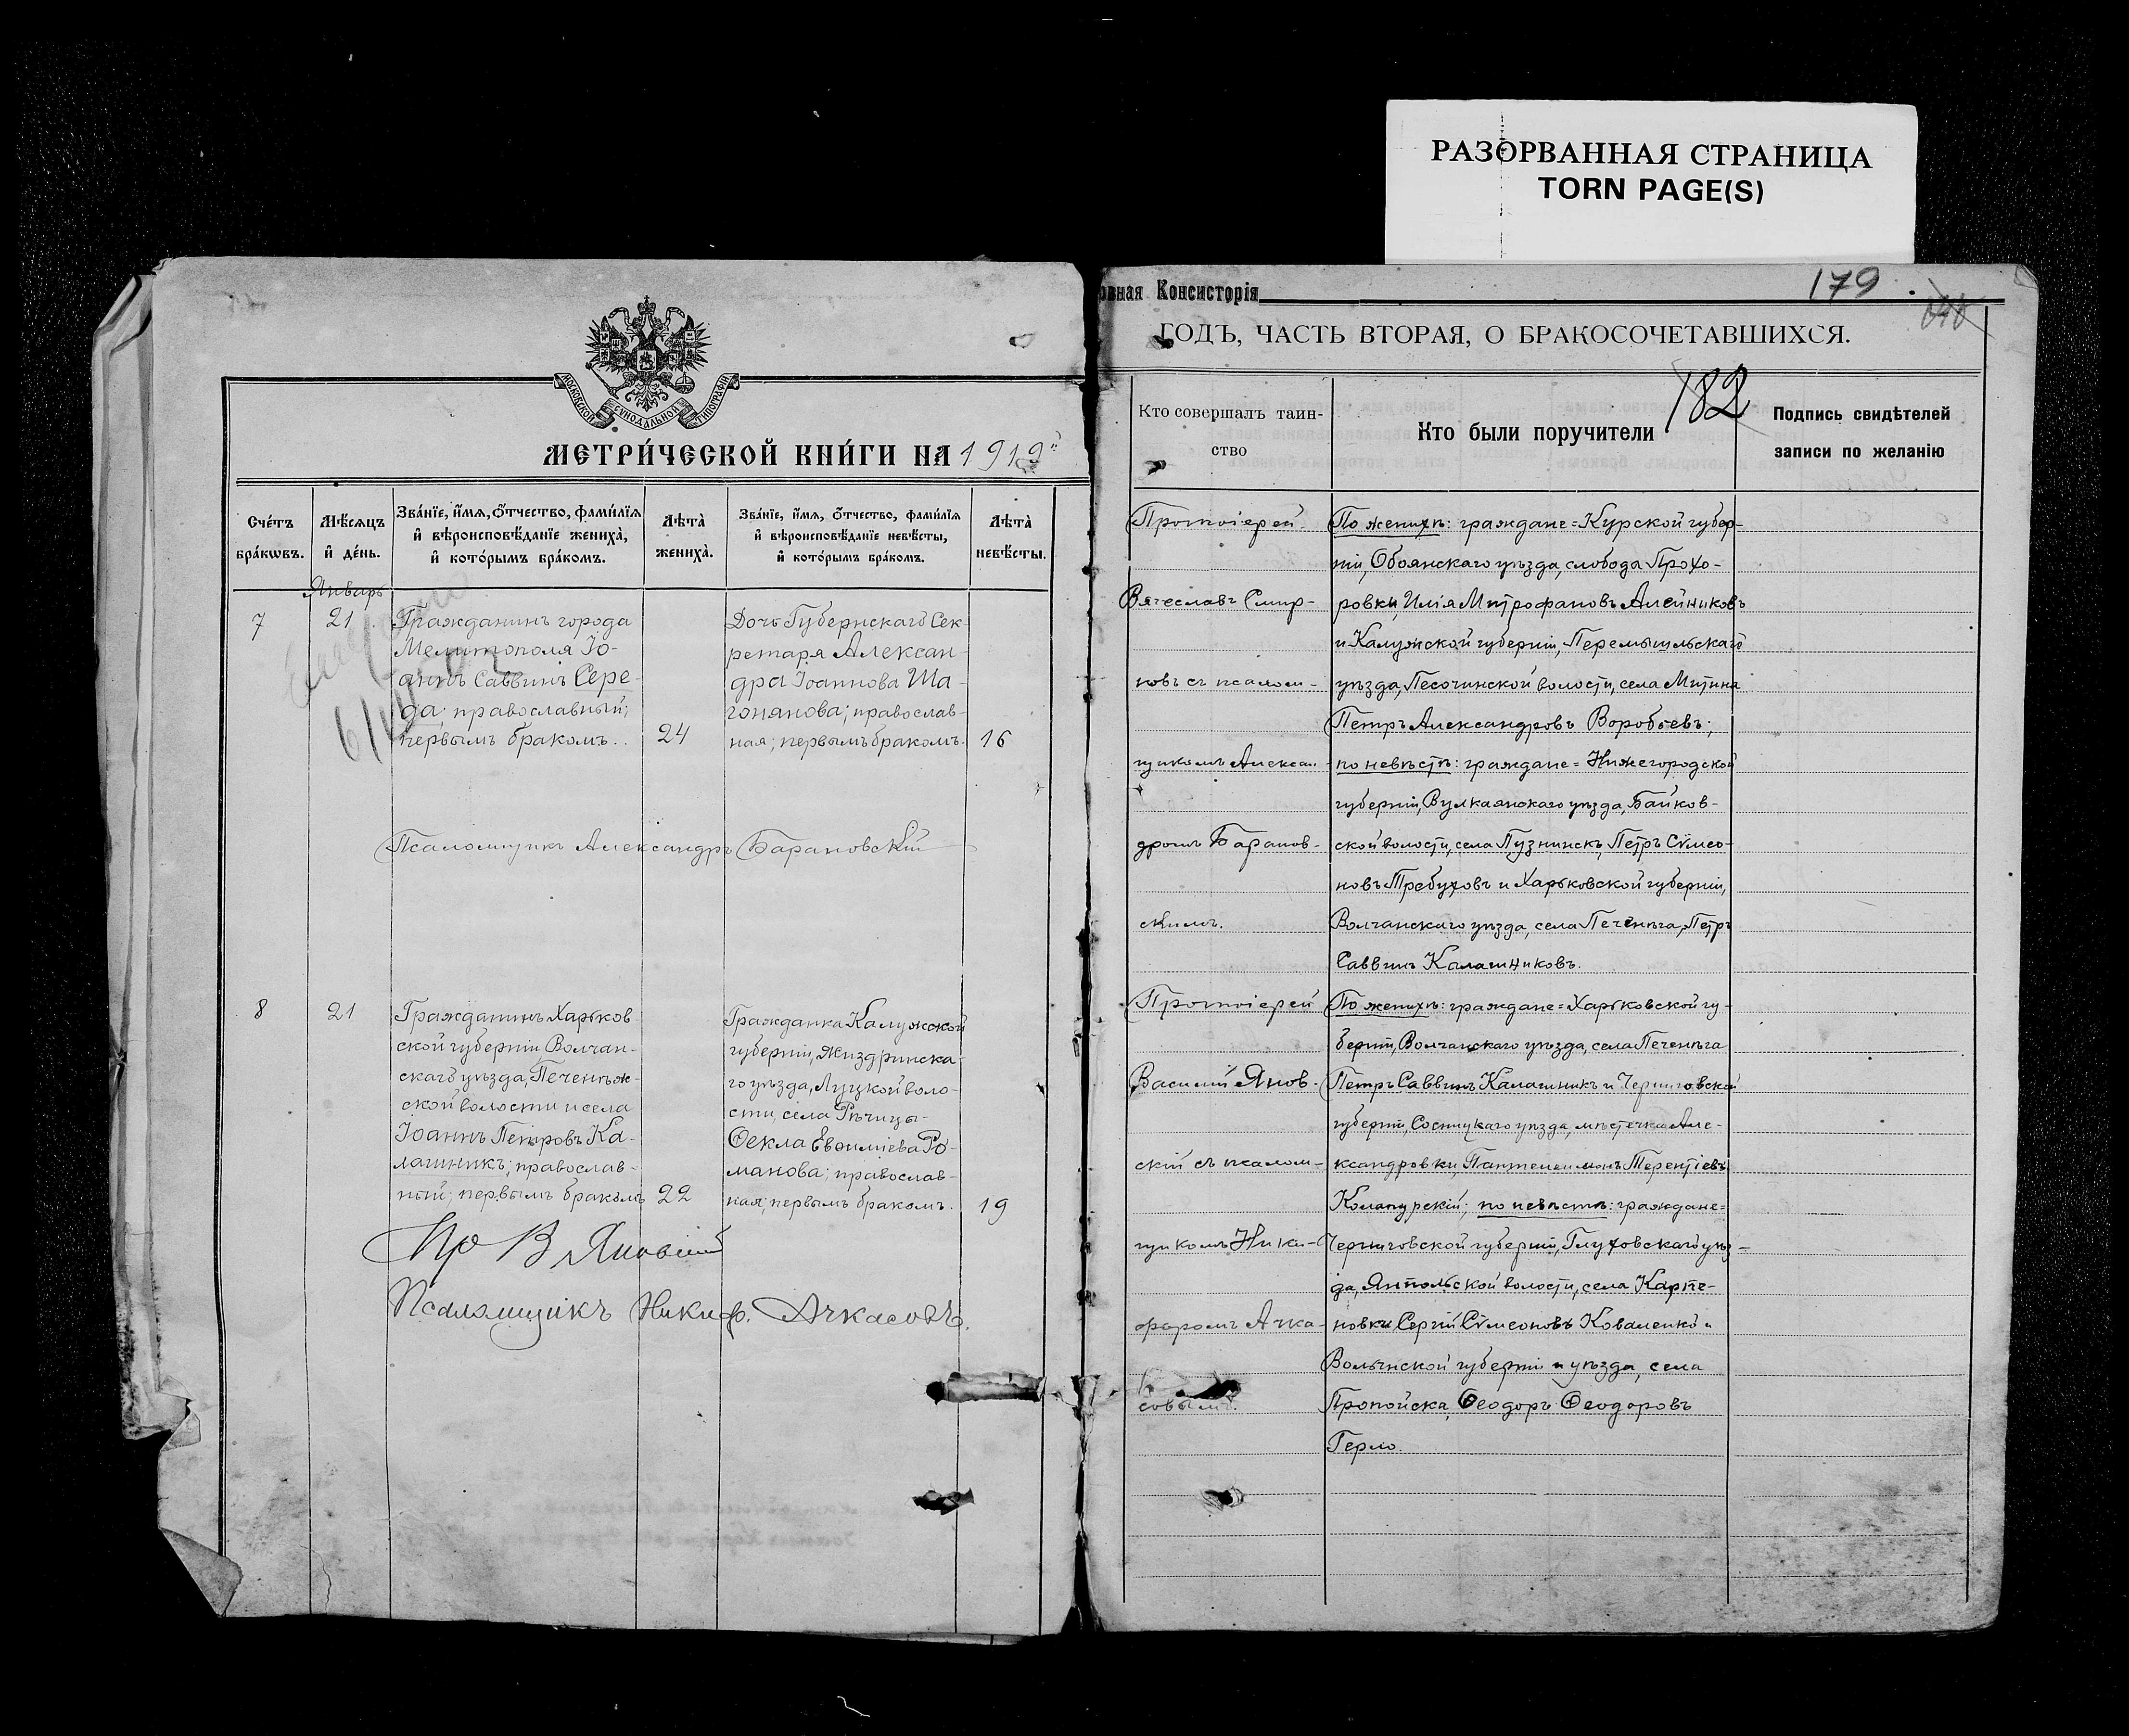 РАЗОРВАННАЯ СТРАНИЦА
TORN PAGE(S)
МОСКОВСКОЙ СѴНОДАЛЬНОЙ ТИПОГРАФІИ
МЕТРИ́ЧЕСКОЙ КНИ́ГИ НА 1919й
Сче́тъ бра́кѡвъ.
Мѣ́сяцъ и҆ де́нь.
Зва́нїе, и҆́мѧ, ѻ҆́тчество, фами́лїѧ и҆ вѣроисповѣ́данїе жениха̀, и҆ кото́рымъ бра́комъ.
Лѣта̀ жениха̀.
Зва́нїе, и҆́мѧ, ѻ҆́тчество, фами́лїѧ и҆ вѣроисповѣ́данїе невѣ́сты, и҆ кото́рымъ бра́комъ.
Лѣта̀ невѣ́сты.
Январь
7
21
Гражданинъ города
Мелитополя Іо-
аннъ Саввинъ Сере-
да; православный;
первымъ бракомъ.
24
Дочь Губернскаго Сек-
ретаря Алексан-
дра Іоаннова Ша-
гонянова; православ-
ная; первымъ бракомъ.
16
Псаломщикъ Александръ Барановскій
8
21
Гражданинъ Харьков
ской губерніи, Волчан-
скаго уѣзда, Печенѣж-
ской волости и села
Іоаннъ Петровъ Ка-
лашникъ; православ-
ный; первымъ бракомъ
22
Гражданка Калужской
губерніи, Жиздринска-
го уѣзда, Луцкой воло-
сти, села Рѣчицы
Ѳекла Евѳиміева Ро-
манова; православ-
ная; первымъ бракомъ.
19
Пр В Яновскій
Псаломщикъ Никиф. Ачкасовъ.
овная Консисторія
179
ГОДЪ, ЧАСТЬ ВТОРАЯ, О БРАКОСОЧЕТАВШИХСЯ.
182
Кто совершалъ таин-
ство
Кто были поручители
Подпись свидѣтелей
записи по желанію
Протоіерей
Вячеславъ Смир-
новъ съ псалом-
щикомъ Алексан-
дромъ Баранов-
скимъ.
По женихѣ: граждане=Курской губер-
ніи, Обоянскаго уѣзда, слобода Прохо-
ровки, Илія Митрофановъ Алейниковъ
и Калужской губерніи, Перемышльскаго
уѣзда, Песочинской волости, села Митина
Петръ Александровъ Воробьевъ;
по невѣстѣ: граждане=Нижегородской
губерніи, Вулкаянскаго уѣзда, Байков-
ской волости, села Пузнинскъ, Петръ Сѵмео-
новъ Требуховъ и Харьковской губерніи,
Волчанскаго уѣзда, села Печенѣга, Петръ
Саввинъ Калашниковъ.
Протоіерей
Василій Янов-
скій съ псалом-
щикомъ Ники-
форомъ Ачка-
совымъ.
По женихѣ: граждане=Харьковской гу-
берніи, Волчанскаго уѣзда, села Печенѣга
Петръ Саввинъ Калашникъ и Черниговской
губерніи, Сосницкаго уѣзда, мѣстечка Але-
ксандровки, Пантелеимонъ Терентіевъ
Коляпурскій; по невѣстѣ: граждане=
Черниговской губерніи, Глуховскаго уѣз-
да, Янпольской волости, села Карпе-
новки Сергій Сѵмеоновъ Коваленко и
Волынской губерніи и уѣзда, села
Пропойска, Ѳеодоръ Ѳеодоровъ
Герло.